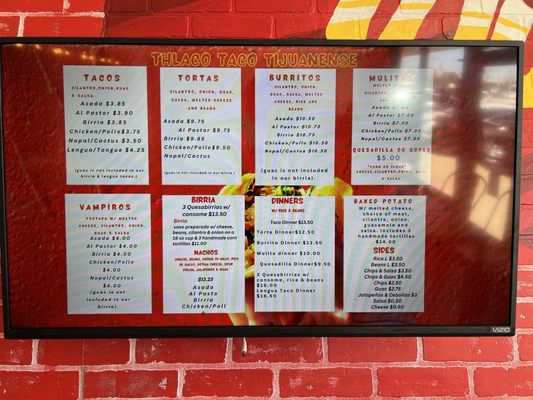 THLACO TACO TIJUANENSE
TACOS
CILANTRO, ONION, GUAC
& SALSA.
Asada $3.85
Al Pastor $3.90
Birria $3.85
Chicken/Pollo $3.75
Nopal/Cactus $3.50
Lengua/Tongue $4.25
(guac is not included in our
birria & lengua tacos.)
TORTAS
CILANTRO, ONION, GUAC,
SALSA, MELTED CHEESE
AND BEANS
Asada $9.75
Al Pastor $9.75
Birria $9.85
Chicken/Pollo $9.50
Nopal/Cactus
(guac is not included in our birria.)
BURRITOS
CILANTRO, ONION,
GUAC, SALSA, MELTED
CHEESE, RICE AND
BEANS
Asada $10.50
Al Pastor $10.75
Birria $10.75
Chicken/Pollo $10.50
Nopal/Cactus $10.50
(guac is not included
in our birria).
MULITAS
Al Pastor $7.00
Birria $7.00
Chicken/Pollo $7.00
Nopal/Cactus $7.00
QUESADILLA OR SOPES
$5.00
& SALSA
VAMPIROS
TOSTADA W/ MELTED
CHEESE, CILANTRO, ONION,
GUAC & SALSA
Asada $4.00
Al Pastor $4.00
Birria $4.00
Chicken/Pollo
$4.00
Nopal/Cactus
$4.00
(guac is not
included in our
birria).
BIRRIA
3 Quesabirrias w/
consome $13.50
Birria
vaso preparado w/ cheese,
beans, cilantro & onion on a
16 oz cup & 3 handmade corn
tortillas $11.00
NACHOS
CHEESE, BEANS, CHOICE OF MEAT, PICO
DE GALLO, NACHO CHEESE, SOUR
CREAM, JALAPEÑOS & GUAC
$13.25
Asada
Al Pasto
Birria
Chicken/Poll
DINNERS
W/ RICE & BEANS
Taco Dinner $13.50
Torta Dinner $12.50
Burrito Dinner $13.50
Mulita dinner $10.00
Quesadilla Dinner $9.50
3 Quesabirrias w/
consome, rice & beans
$16.00
Lengua Taco Dinner
$16.50
BAKED POTATO
W/ melted cheese,
choice of meat,
cilantro, onion,
guacamole and
salsa. Includes 3
handmade tortillas
$14.00
SIDES
Rice L $3.50
Beans L $3.50
Chips & Salsa $3.50
Chips & Guac $4.50
Chips $2.50
Guac $2.75
Jalapeños & Cebollas $3
Salsa $0.50
Cheese $0.50
VIZIO